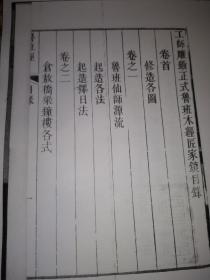 工師雕斵正式魯班木經匠家鏡目錄
卷首
修造各圖
卷之一
魯班仙師源流
起造各法
起造擇日法
卷之二
倉敖橋梁鐘樓各式
魯班經
目錄
一